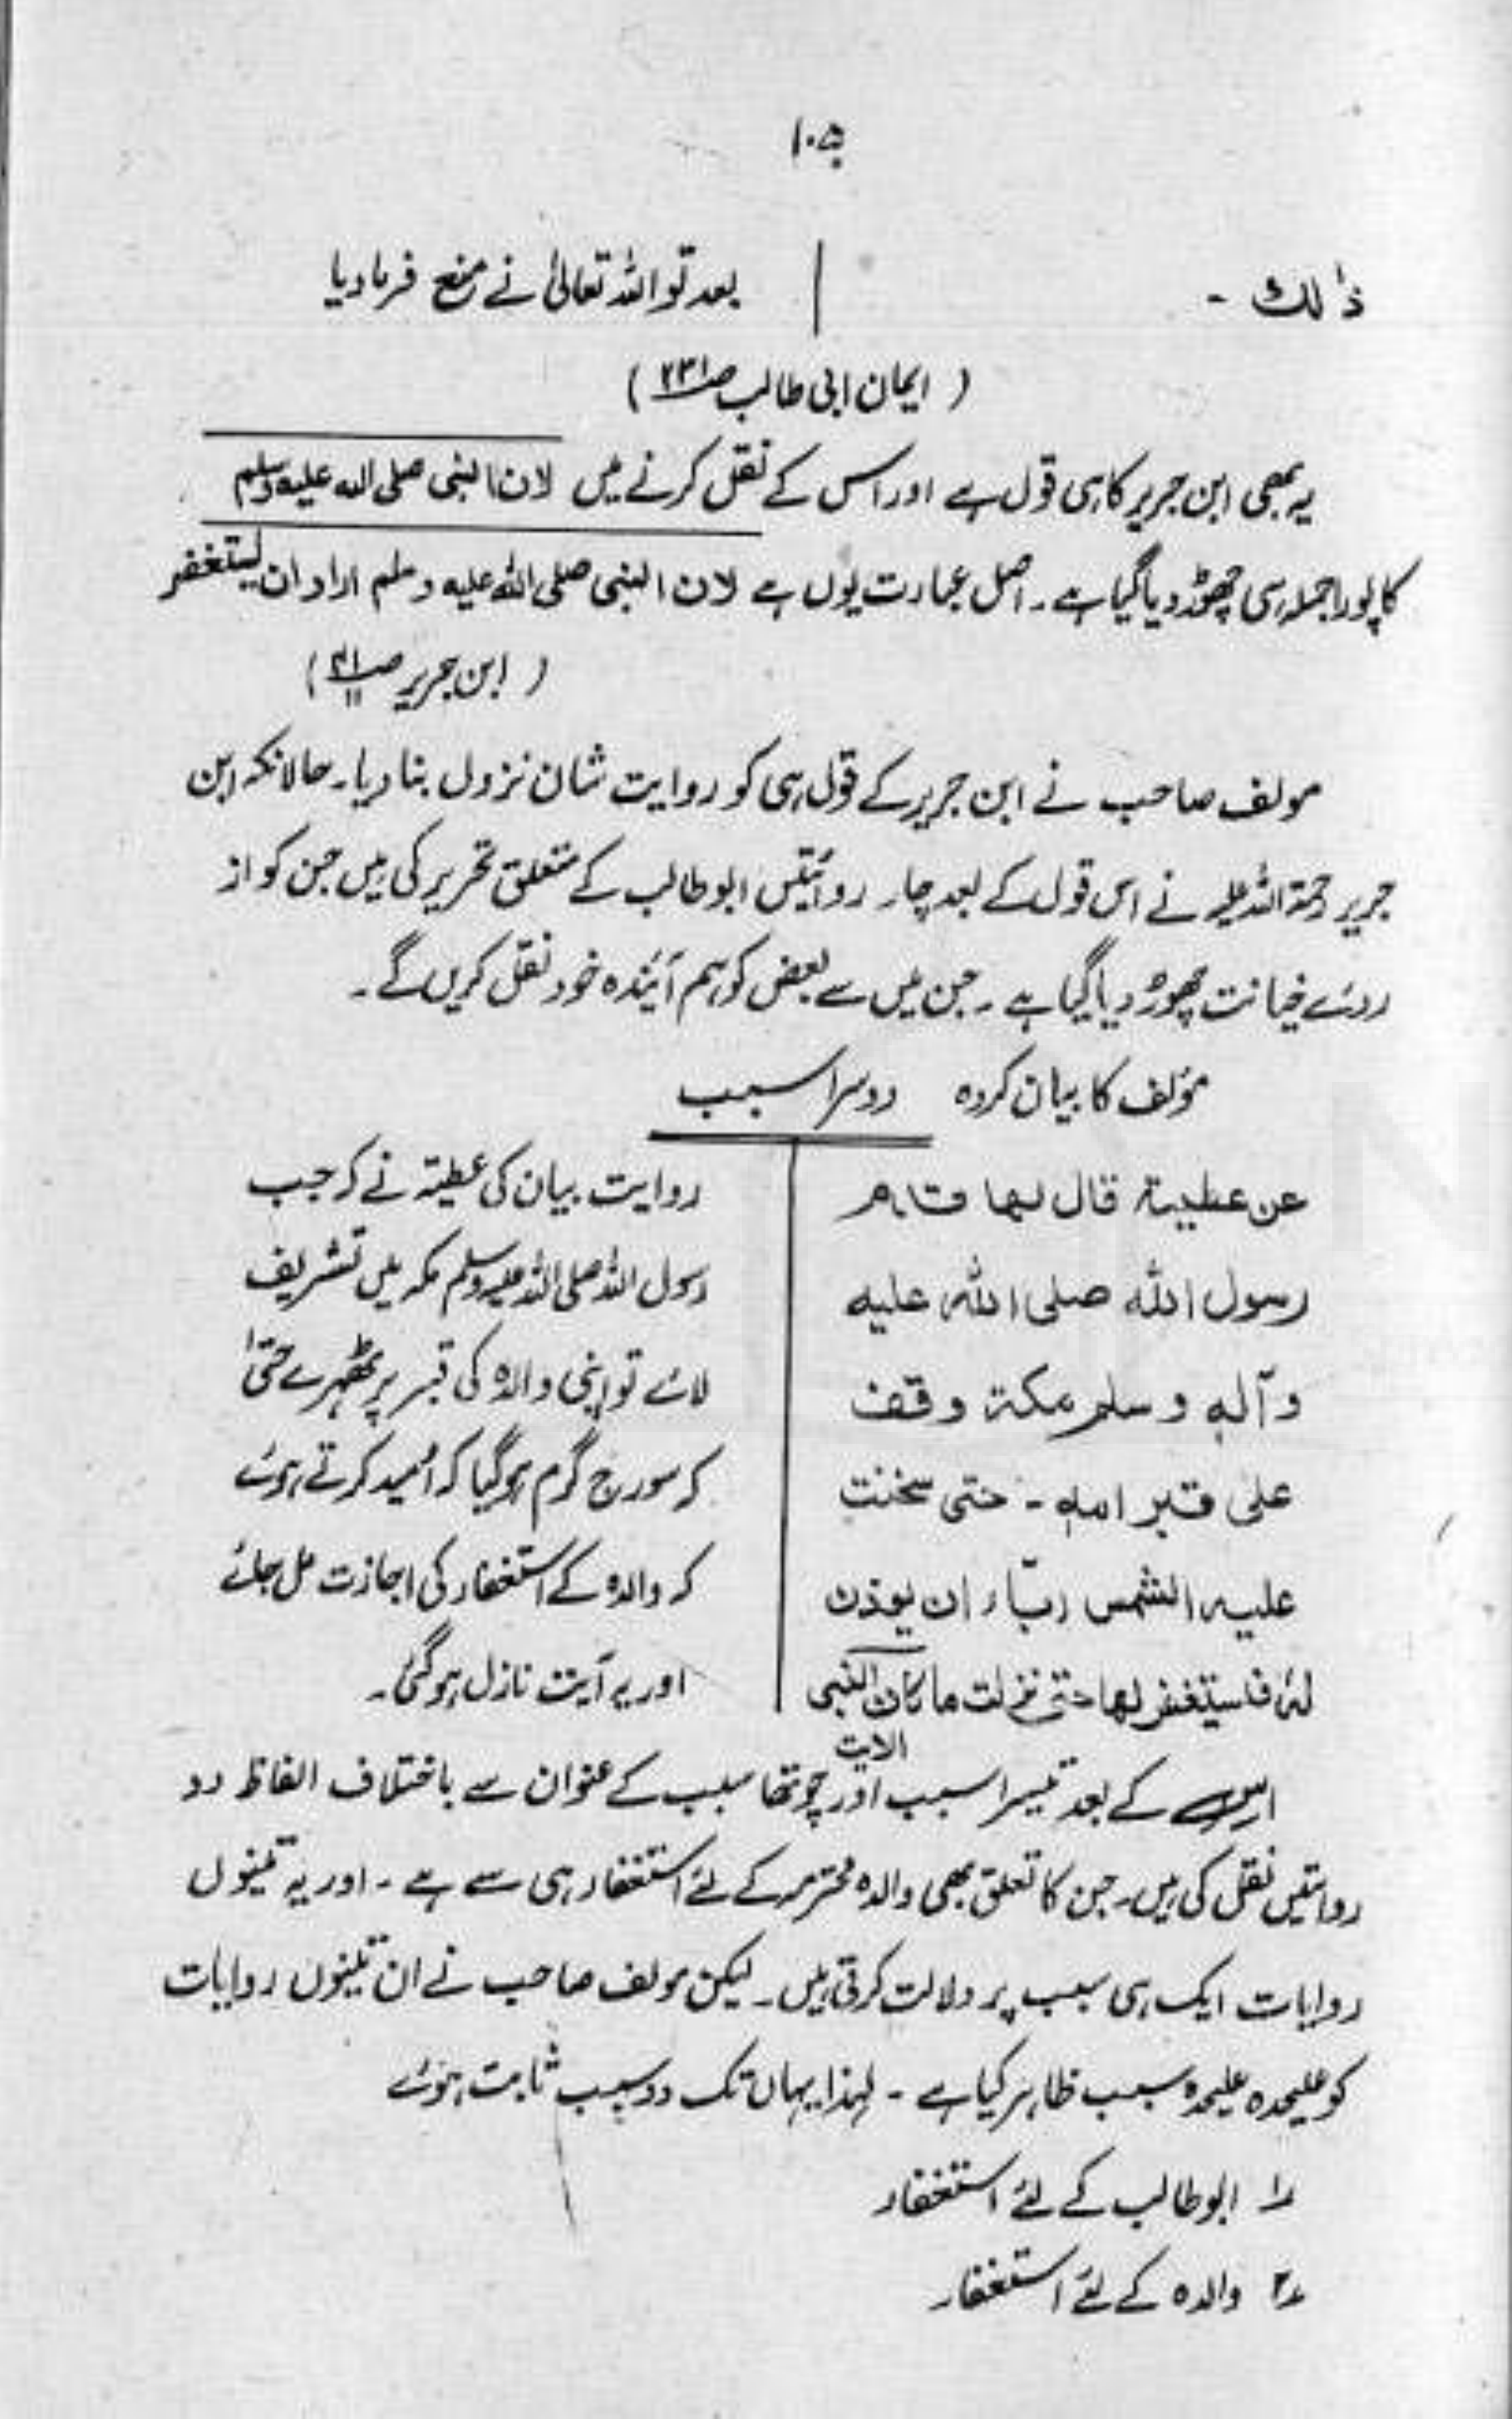 ۱۰۵
ذٰلك -
بعد تو اللہ تعالیٰ نے منع فرما دیا
( ایمان ابی طالب ص۲۳۱ )
یہ بھی ابن جریر کا ہی قول ہے اور اس کے نقل کرنے میں لان النبی صلی اللہ علیہ وسلم
کا پورا جملہ ہی چھوڑ دیا گیا ہے۔ اصل عبارت یوں ہے لان النبی صلی اللہ علیہ وسلم اراد ان یستغفر
( ابن جریر ص۳۱ ۱۱)
مولف صاحب نے ابن جریر کے قول ہی کو روایت شان نزول بنا دیا۔ حالانکہ ابن
جریر رحمۃ اللہ علیہ نے اس قول کے بعد چار روائتیں ابو طالب کے متعلق تحریر کی ہیں جن کو از
روئے خیانت چھوڑ دیا گیا ہے۔ جن میں سے بعض کو ہم آئندہ خود نقل کریں گے۔
مؤلف کا بیان کردہ دوسرا سبب
عن عطیۃ قال لما قام
رسول اللہ صلی اللہ علیہ
وآلہ وسلم مکۃ وقف
علی قبر امہ - حتی سخنت
علیہ الشمس رجاء ان یوذن
لہ فیستغفر لها حتی نزلت ما کان النبی
الایت
روایت بیان کی عطیۃ نے کہ جب
رسول اللہ صلی اللہ علیہ وسلم مکہ میں تشریف
لائے تو اپنی والدہ کی قبر پر ٹھہرے حتیٰ
کہ سورج گرم ہو گیا کہ اُمید کرتے ہوئے
کہ والدہ کے استغفار کی اجازت مل جائے
اور یہ آیت نازل ہو گئی۔
اس کے بعد تیسرا سبب اور چوتھا سبب کے عنوان سے باختلاف الفاظ دو
روائتیں نقل کی ہیں۔ جن کا تعلق بھی والدہ محترمہ کے لئے استغفار ہی سے ہے۔ اور یہ تینوں
روایات ایک ہی سبب پر دلالت کرتی ہیں۔ لیکن مولف صاحب نے ان تینوں روایات
کو علیحدہ علیحدہ سبب ظاہر کیا ہے۔ لہذا یہاں تک دو سبب ثابت ہوئے
۱ ابو طالب کے لئے استغفار
۲ والدہ کے لئے استغفار